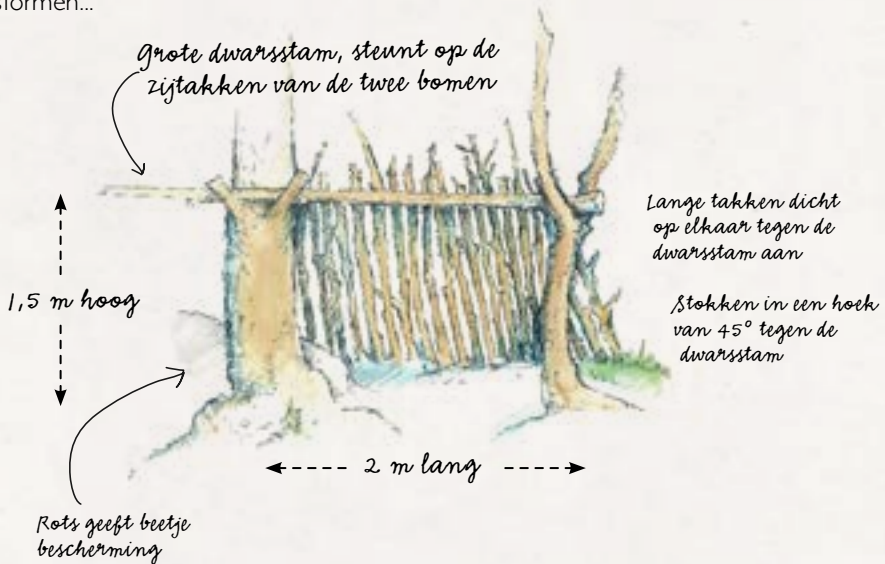 sformen...
Grote dwarsstam, steunt op de
zijtakken van de twee bomen
Lange takken dicht
op elkaar tegen de
dwarsstam aan
1,5 m hoog
Stokken in een hoek
van 45° tegen de
dwarsstam
2 m lang
Rots geeft beetje
bescherming